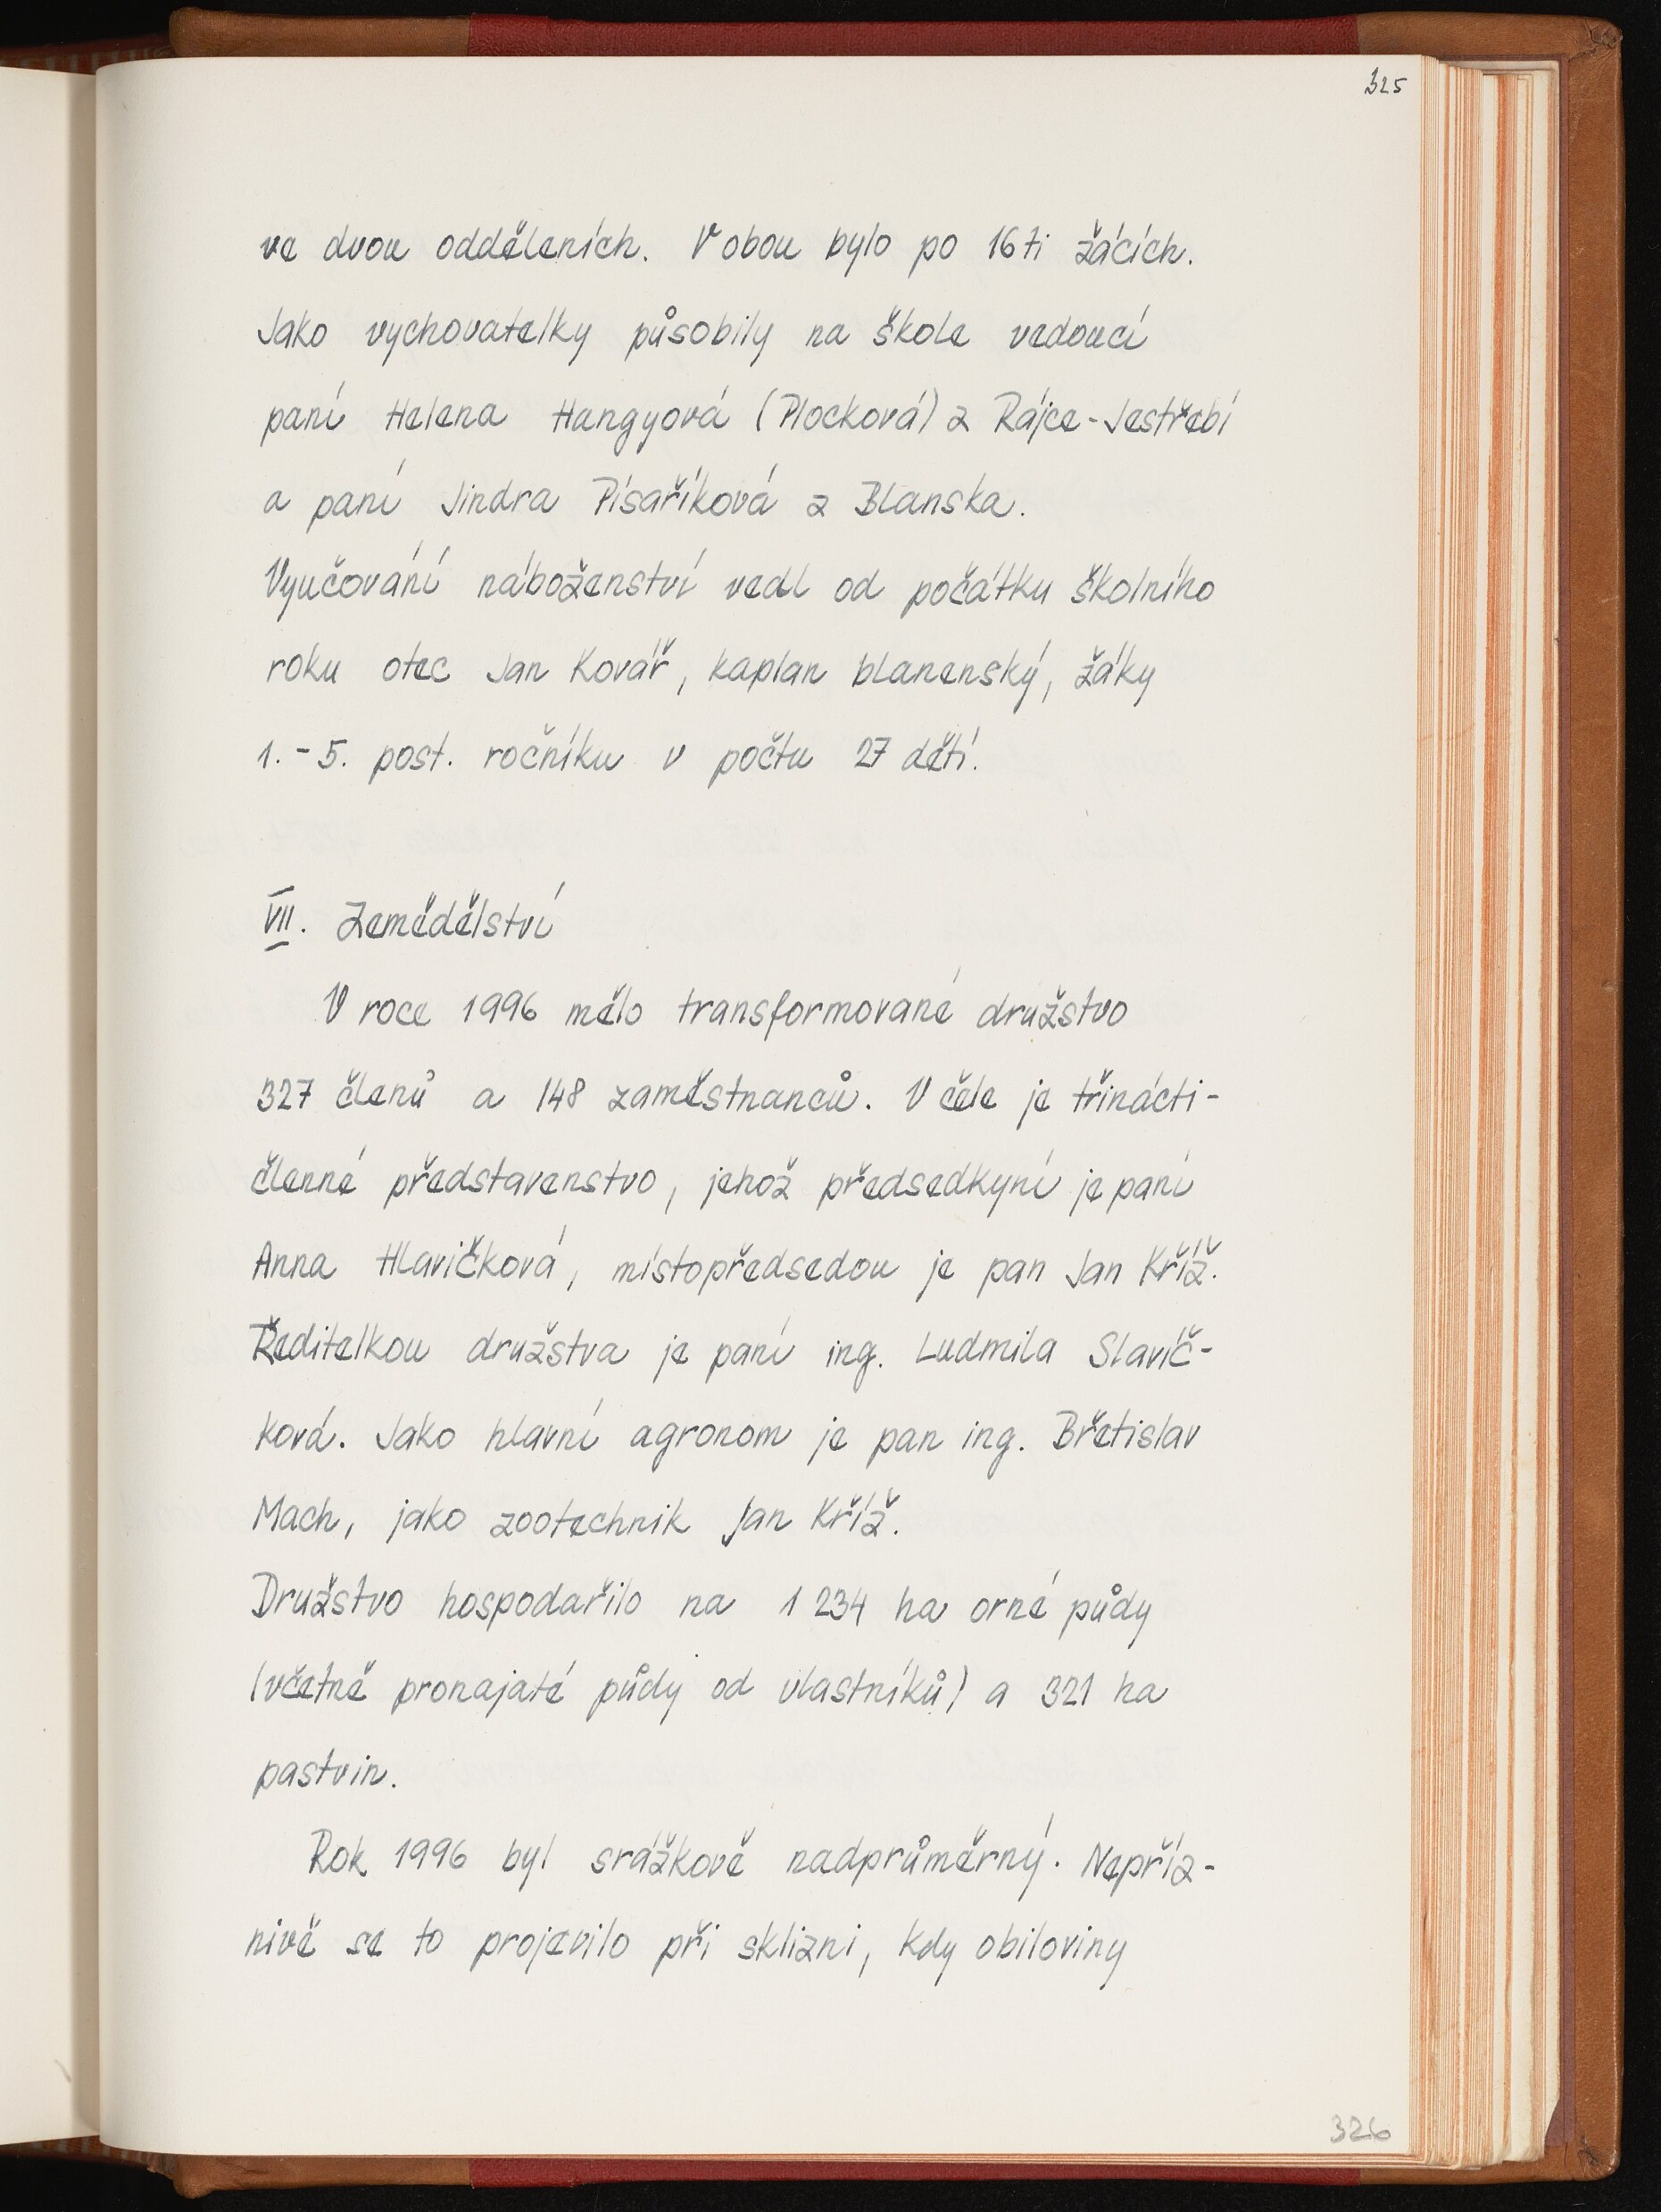 325
ve dvou odděleních. V obou bylo po 16 ti žácích.
Jako vychovatelky působily na škole vedoucí
paní Helena Hangyová (Plocková) z Rájce-Jestřebí
a paní Jindra Písaříková z Blanska.
Vyučování náboženství vedl od počátku školního
roku otec Jan Kovář, kaplan blanenský, žáky
1.-5. post. ročníku v počtu 27 dětí.
VII. Zemědělství
V roce 1996 mělo transformované družstvo
327 členů a 148 zaměstnanců. V čele je třinácti-
členné představenstvo, jehož předsedkyní je paní
Anna Hlavičková, místopředsedou je pan Jan Kříž.
Ředitelkou družstva je paní ing. Ludmila Slavíč-
ková. Jako hlavní agronom je pan ing. Břetislav
Mach, jako zootechnik Jan Kříž.
Družstvo hospodařilo na 1 234 ha orné půdy
(včetně pronajaté půdy od vlastníků) a 321 ha
pastvin.
Rok 1996 byl srážkově nadprůměrný. Nepříz-
nivě se to projevilo při sklizni, kdy obiloviny
326